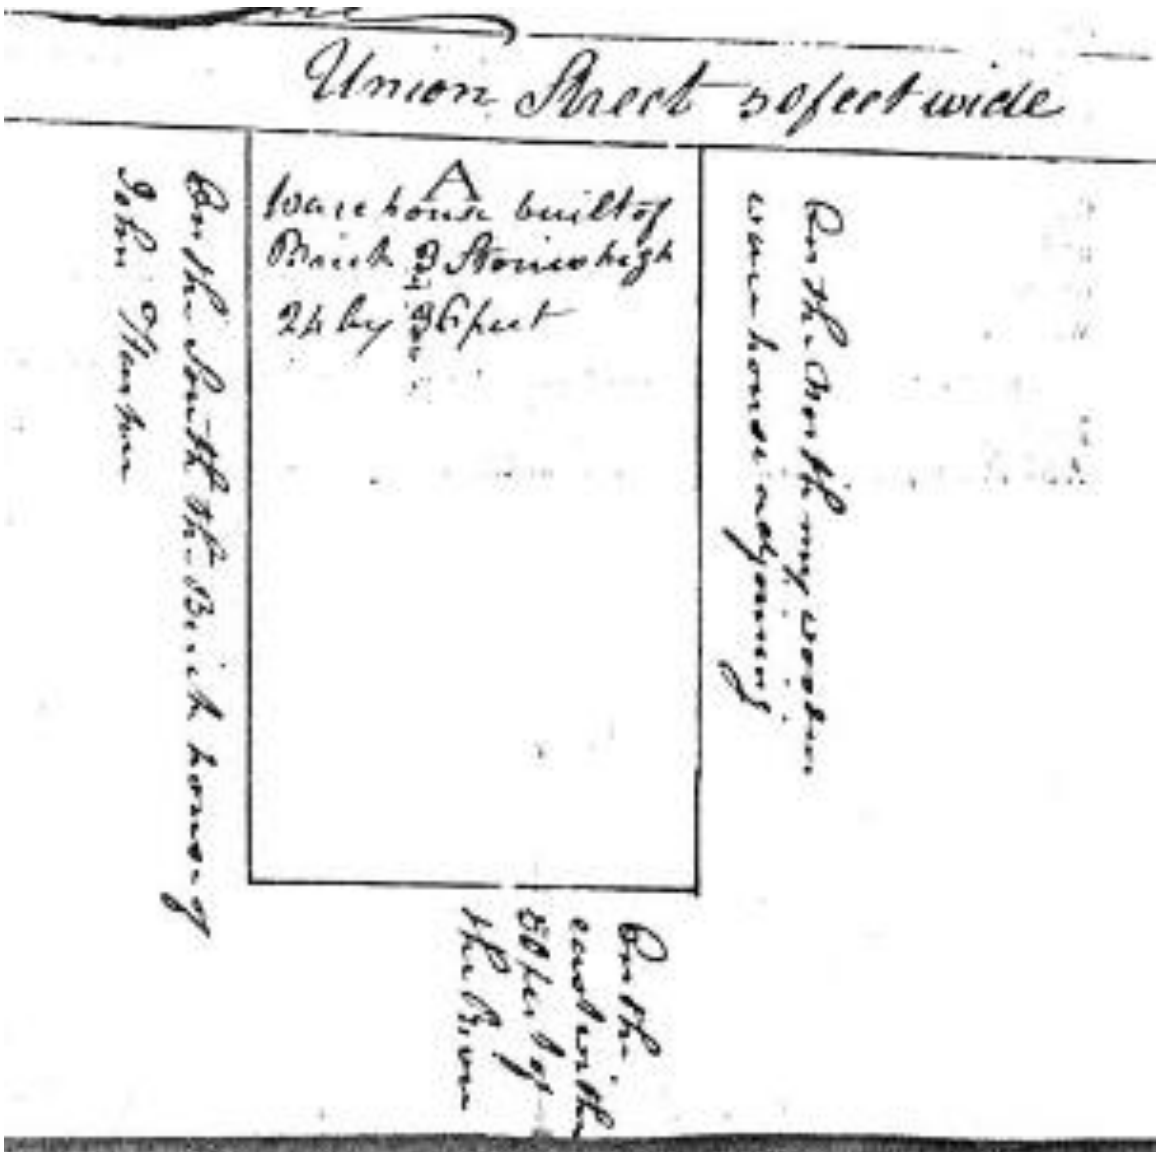 Union Street 50 feet wide
A
Ware house built of
Brick 3 Stories high
24 by 36 feet
On the South the Brick house of
John
On the North my wooden
ware house adjoining
On the
east within
50 feet of
the River